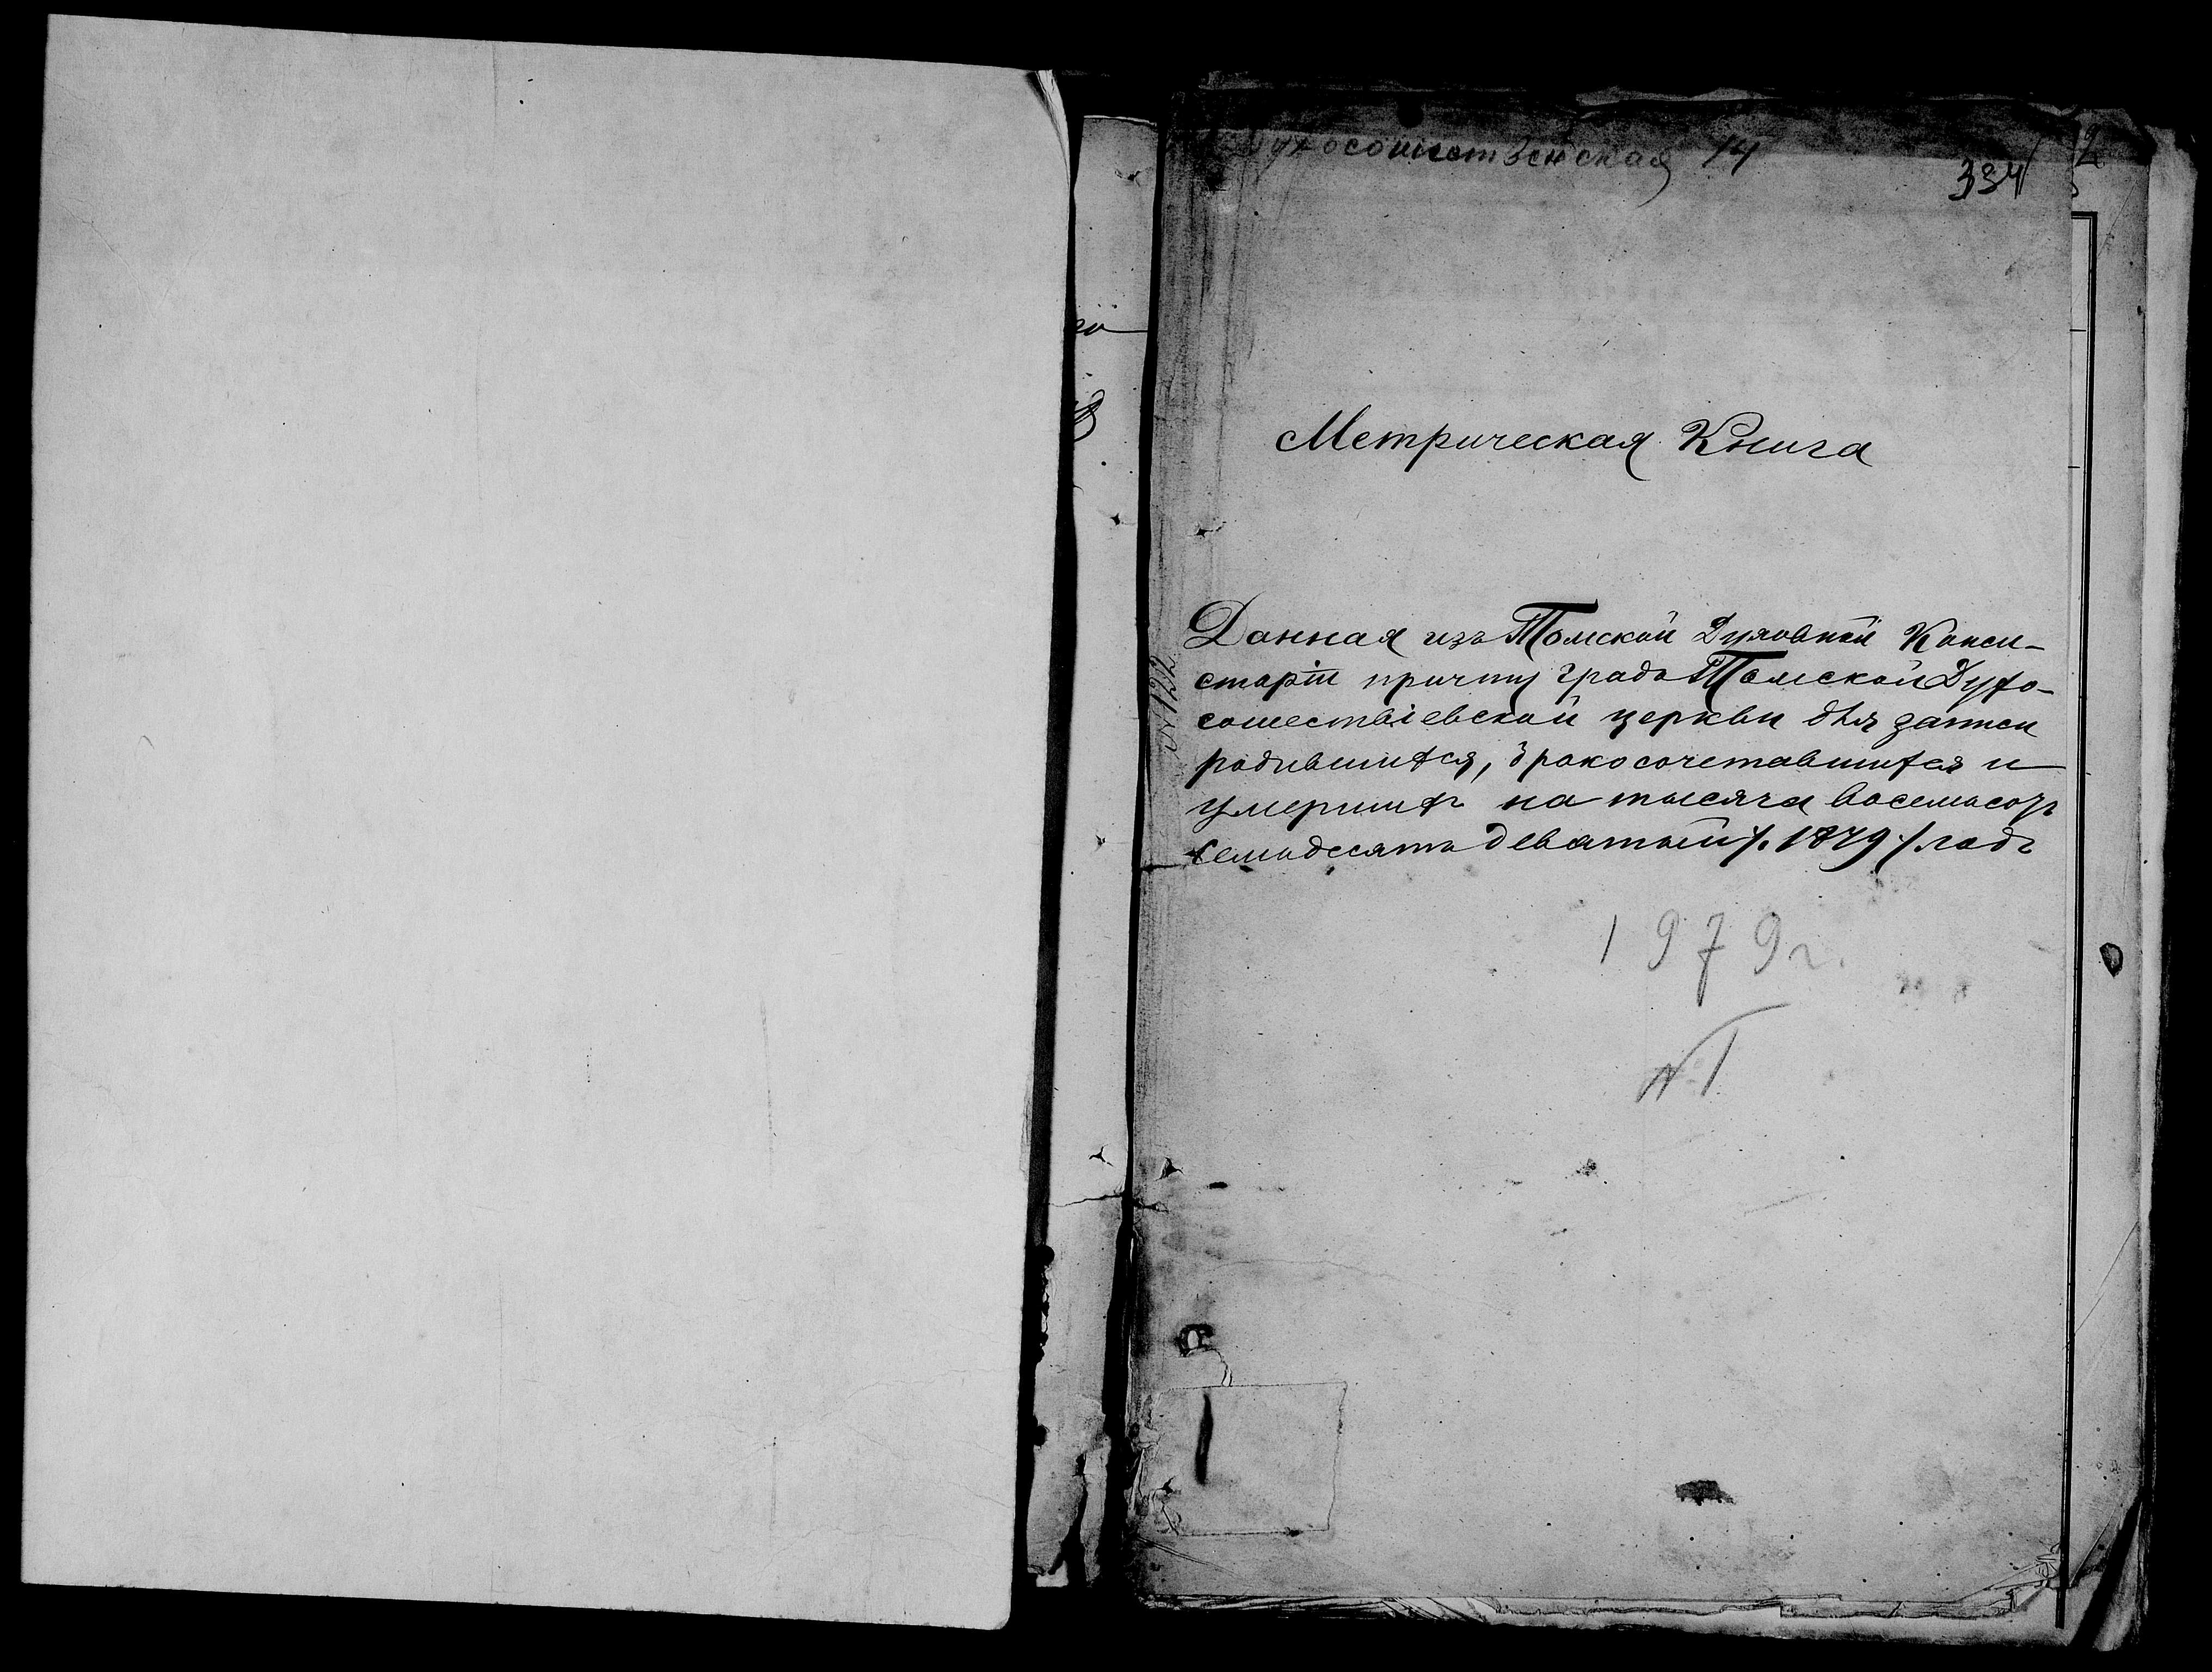 Духосошественская 14
334
Метрическая Книга
Данная изъ Томской Духовной Конси-
сторіи причту града Томской Духо-
сошествіевской церкви для записи
родившихся, бракосочетавшихся и
умершихъ на тысяча восемьсотъ
семьдесятъ девятый /. 1879 ./ годъ
1979 г.
№ 122